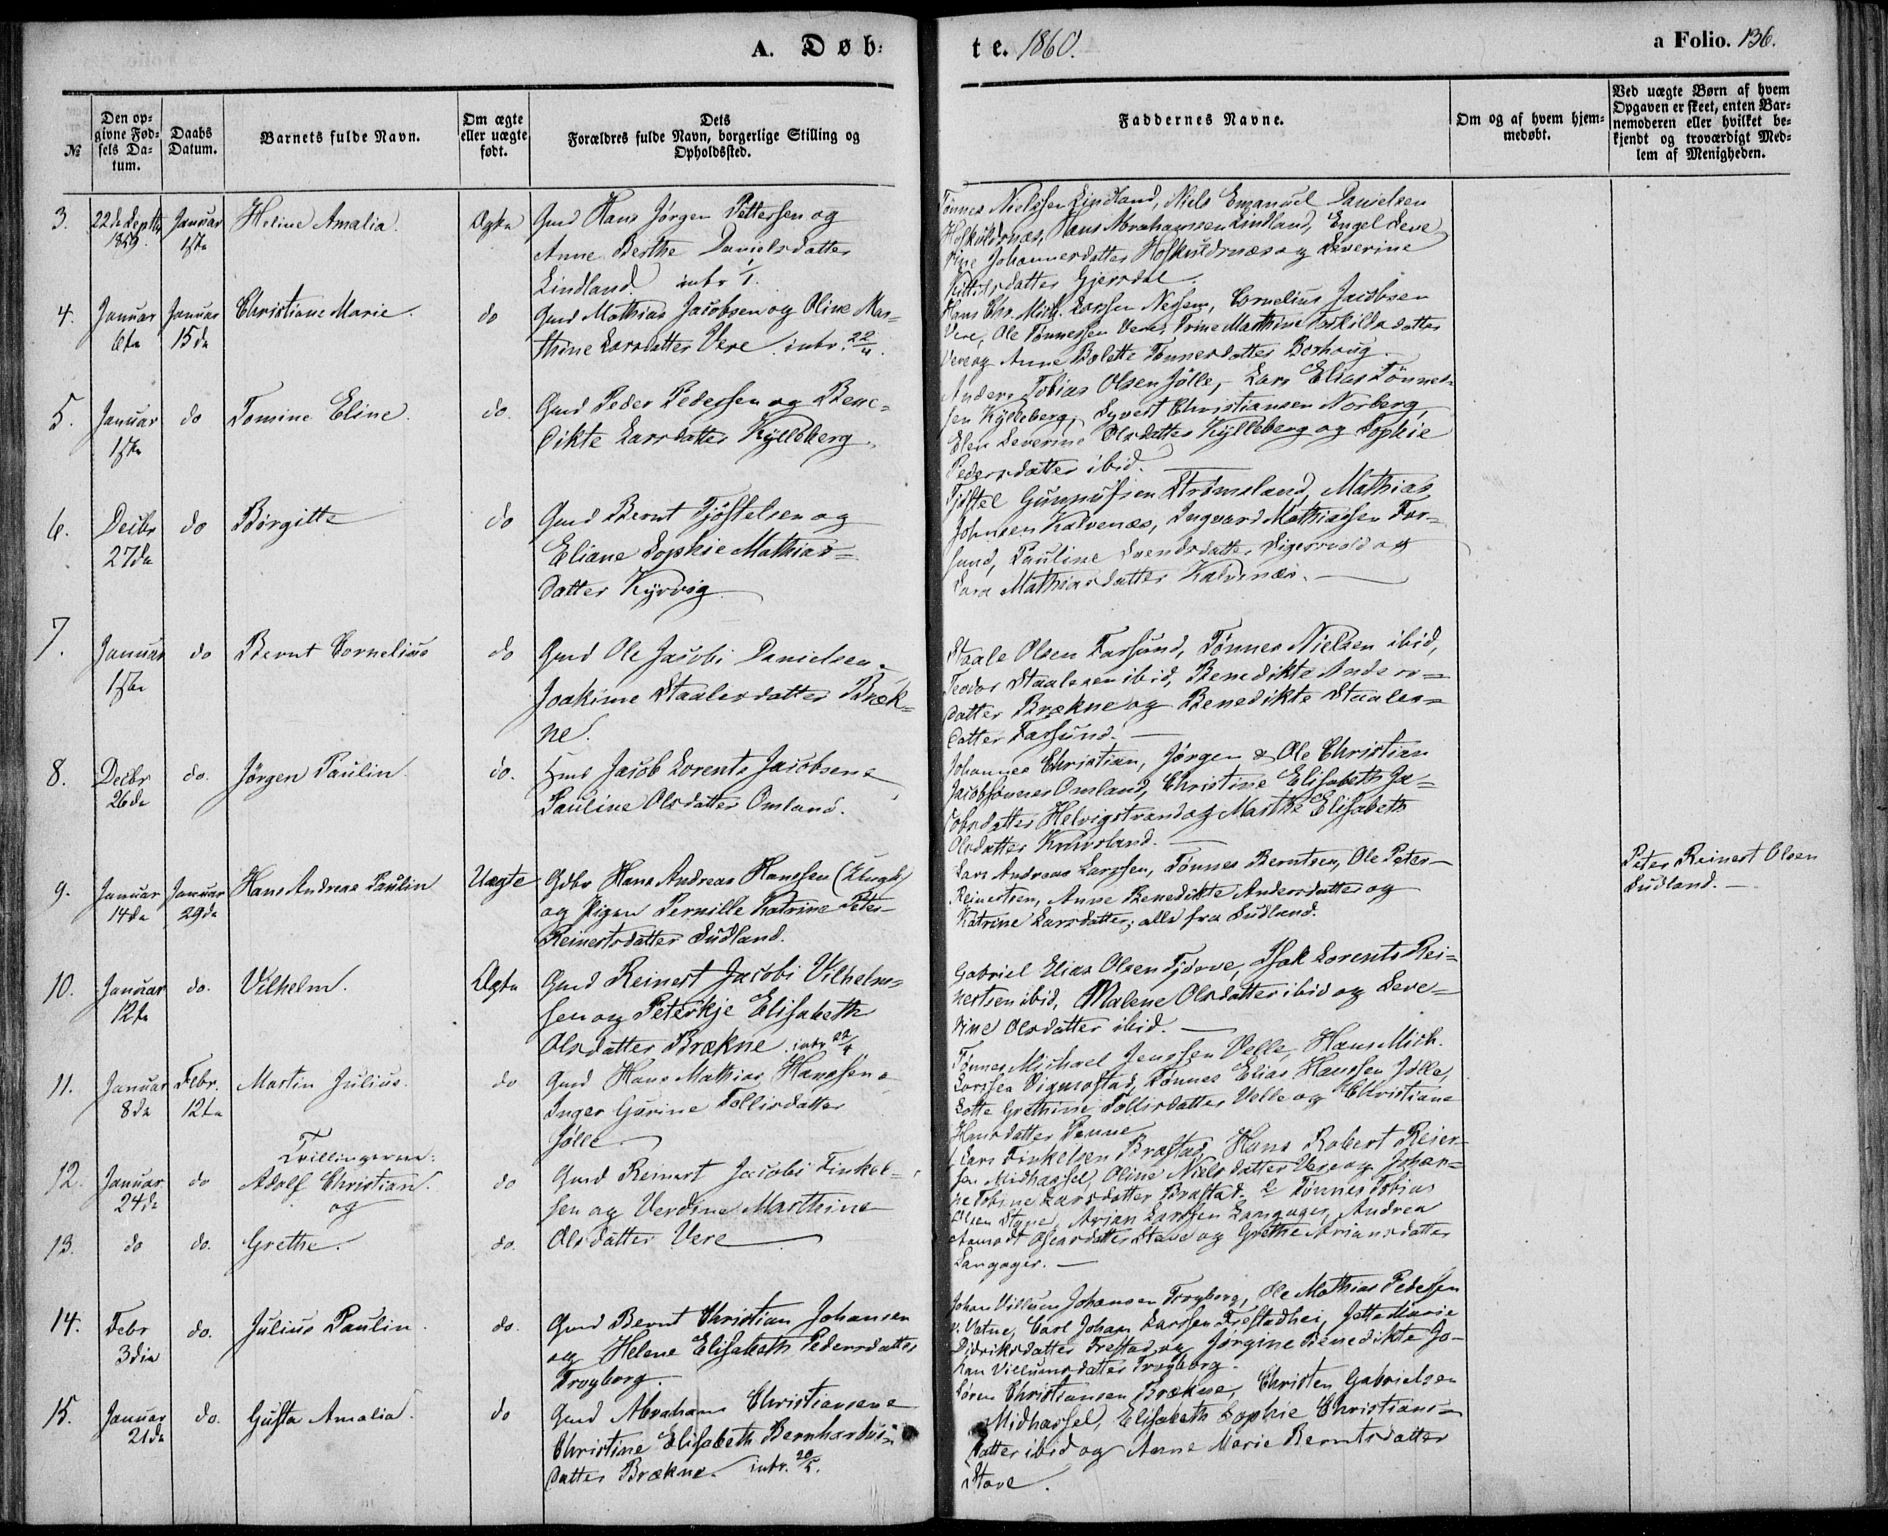 A. Døb- te. 1860. a Folio. 136.
№
Den op-
givne Fød-
sels Da-
tum.
Daabs
Datum.
Barnets fulde Navn.
Om ægte
eller uægte
født.
Dets
Forældres fulde Navn, borgerlige Stilling og
Opholdssted.
Faddernes Navne.
Om og af hvem hjem-
medøbt.
Ved uægte Børn af hvem
Opgaven er skeet, enten Bar-
nemoderen eller hvilket be-
kjendt og troværdigt Med-
lem af Menigheden.
3. 22de Septb 1859. Januar 1ste Heline Amalia. Ægte
Gmd Hans Jørgen Pettersen og
Anne Berthe Danielsdatter
Lindland intr 1/1.
Tønnes Nielssen Lindland, Niels Emanuel Danielsen
Hoskuldnæs, Hans Abrahamsen Lindland, Engel Seve-
rine Johannesdatter Hoskuldnæs og Severine
datter Gjersdal.
4. Januar 6te Januar 15de Christiane Marie. do
Gmd Mathias Jacobsen og Oline Mar-
thine Larsdatter Vere. intr. 22/4.
Hans Chr. Mich. Larssen Nesem, Cornelius Jacobsen
Vere, Ole Tønnessen Vere, Trine Marthine Torkildsdatter
Vere og Anne Bolette Tønnesdatter Borhaug.
5. Januar 1ste do Tomine Eline. do.
Gmd Peder Pedersen og Bene-
dikte Larsdatter Kylleberg.
Anders Tobias Olsen Jølle, Lars Elias Tønnes-
sen Kylleberg, Syvert Christiansen Norberg,
Elen Severine Olsdatter Kylleberg og Sophie
Pedersdatter ibid.
6. Decbr 27de do Børgitte do
Gmd Bernt Tjøstelsen og
Eliane Sophie Mathias-
datter Kyrvig
Tjøstel Gunnufsen Strømsland, Mathias
Johnsen Kalvenæs, Ingvard Mathiassen Far-
sund, Pauline Svendsdatter Sigersvold og
Sara Mathiasdatter Kalvenæs.
7. Januar 1ste do Bernt Cornelius do
Gmd Ole Jacobi Danielsen o
Joakime Staalesdatter Bræk-
ne.
Staale Olsen Farsund, Tønnes Nielsen ibid,
Teodor Staalesen ibid, Benedikte Anders-
datter Brækne og Benedikte Staales-
datter Farsund.
8. Decbr 26de do. Jørgen Paulin. do.
Jacob Lorents Jacobsen o
Pauline Olsdatter Omland.
Johannes Christian, Jørgen & Ole Christian
Jacobsønner Omland, Christine Elisabeth Ja-
cobsdatter Helvigstrand og Marthe Elisabeth
Olsdatter
9. Januar 14de Januar 29de Hans Andreas Paulin Uægte
Hans Andreas Hanssen
og Pigen Pernille Katrine Peter-
Reinertsdatter Sudland.
Lars Andreas Larssen, Tønnes Berntsen, Ole Peter-
Reinertsen, Anne Benedikte Andersdatter og
Katrine Larsdatter, alle fra Sudland.
Peter Reinert Olsen
Sudland.
10. Januar 12te do. Vilhelm. Ægte
Gmd Reinert Jacobi Vilhelm-
sen og Peterkje Elisabeth
Olsdatter Brækne. intr 22/4
Gabriel Elias Olsen Tjørve, Isak Lorents Rei-
nertsen ibid, Malene Olsdatter ibid og Seve-
rine Olsdatter ibid.
11. Januar 8de Febr. 12te Martin Julius. do
Gmd Hans Mathias Hanssen o
Inger Gurine Tollisdatter
Jølle
Tønnes Michael Jenssen Velle, Hans Mich.
Larssen Vigmostad, Tønnes Elias Hanssen Jølle,
Lotte Grethine Tollisdatter Velle og Christiane
Hansdatter Penne
Tvillingerne:
12. Januar 24de do Adolf Christian. do
og
Gmd Reinert Jacobi Finkel-
sen og Verdine Marthine
13. do do. Grethe. do.
Olsdatter Vere
Lars Finkelsen Brastad, Hans Robert Reier-
sen Midhassel, Oline Nielsdatter Vere og Johan-
ne Tobine Larsdatter Brastad. & Tønnes Tobias
Olsen Stave, Arian Larssen Langager, Andrea
datter Stave og Grethe Ariansdatter
Langager.
14. Febr 3die do. Julius Paulin. do.
Gmd Bernt Christian Johansen
og Helene Elisabeth Pedersdatter
Troyborg.
Johan Villum Johansen Troyborg, Ole Mathias Pedersen
v. Vatne, Carl Johan Larssen Frestadhei, Jotte Marie
Didriksdatter Frestad og Jørgine Benedikte Jo-
han Villumsdatter Troyborg.
15. Januar 21de do. Gusta Amalia. do
Gmd Abraham Christiansen o
Christine Elisabeth Bernhardus-
datter Brækne. intr.
Søren Christiansen Brækne, Christen Gabrielsen
Midhassel, Elisabeth Sophie Christians-
datter ibid og Anne Marie Berntsdatter
Stave.